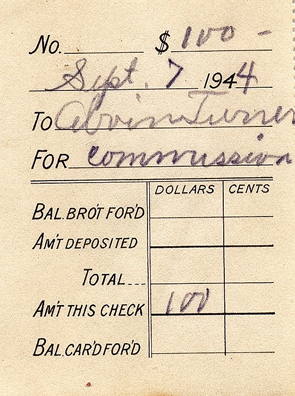 No. $ 100 -
Sept. 7 1944
To Alvin Turner
For commission
DOLLARS CENTS
BAL. BRO'T FOR'D
AM'T DEPOSITED
TOTAL...
AM'T THIS CHECK 100
BAL. CAR'D FOR'D